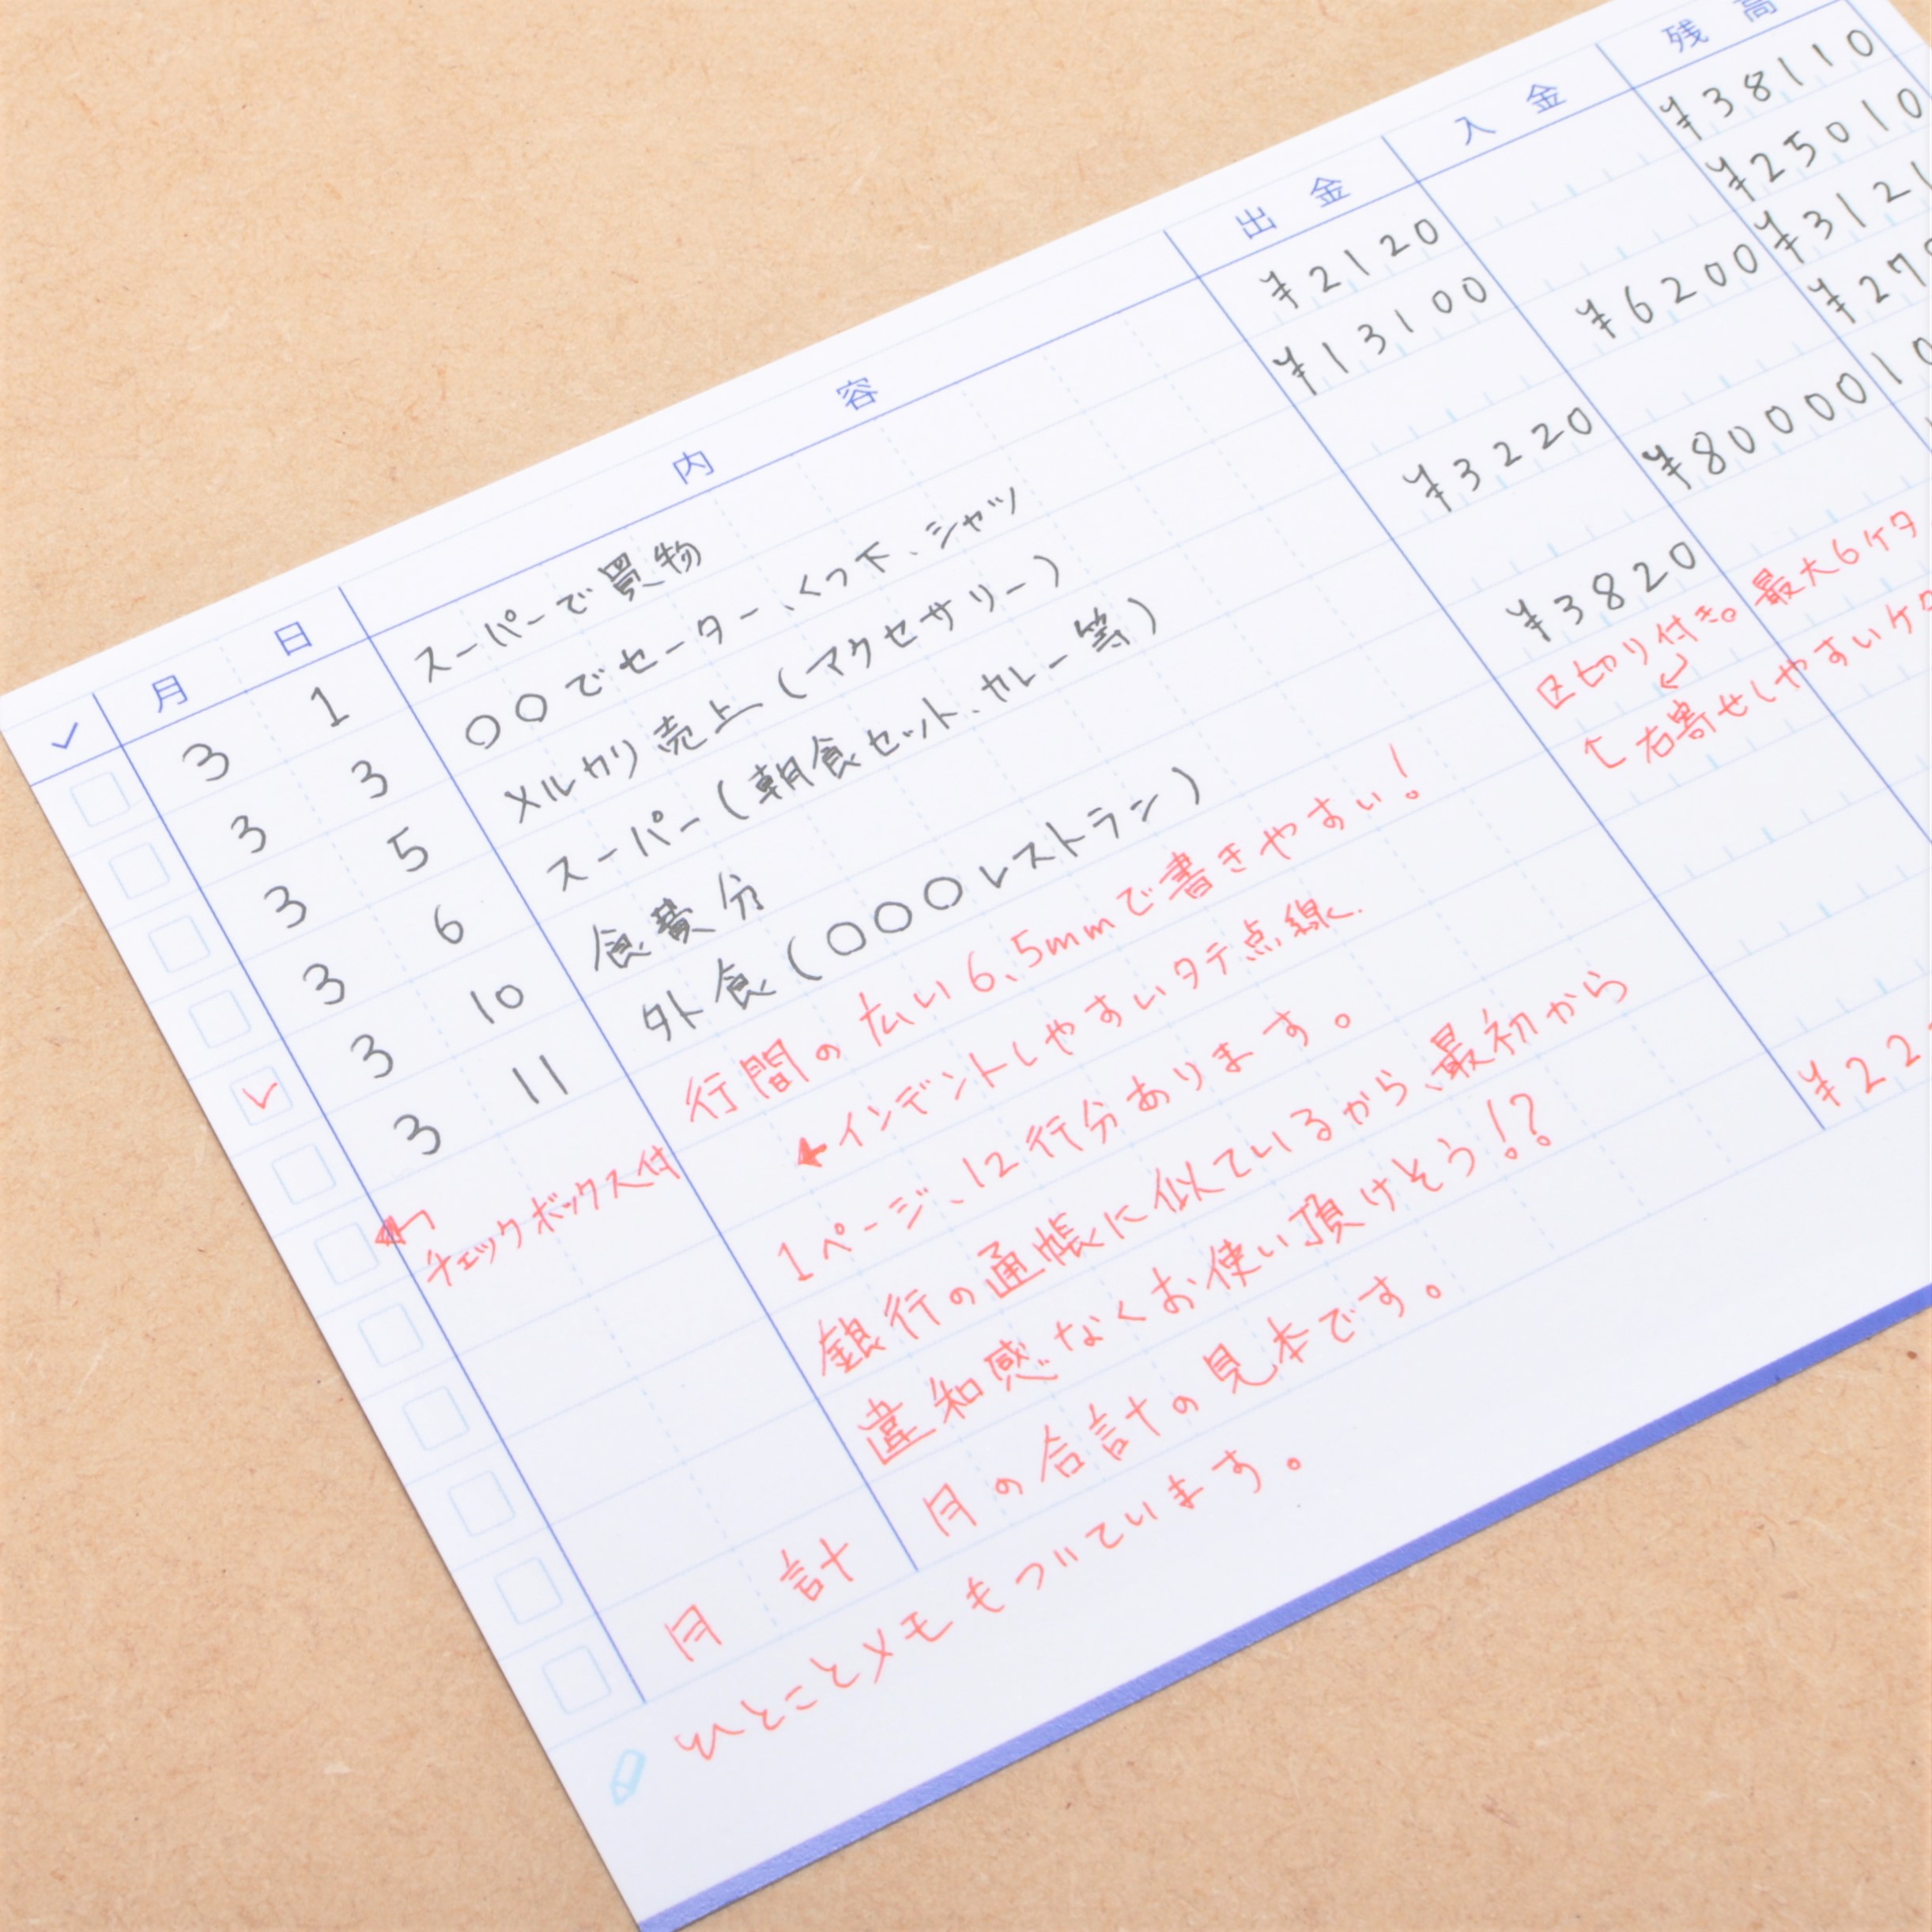 ✓ 月 日 内容 出金 入金 残高
3 1 スーパーで買物 ¥2120 ¥38110
3 3 〇〇でセーター、くつ下、シャツ ¥13100 ¥25010
3 5 メルカリ売上(アクセサリー) ¥6200 ¥3121
3 6 スーパー(朝食セット、カレー等) ¥3220 ¥27
3 10 食費分 ¥80000 10
3 11 外食(〇〇〇レストラン) ¥3820
行間の広い6.5mmで書きやすい! 区切り付き。最大6ケタ
チェックボックス付 ←インデントしやすいタテ点線 ↑右寄せしやすいケタ
1ページ、12行分あります。
銀行の通帳に似ているから、最初から
違和感なくお使い頂けそう!?
月計 月の合計の見本です。 ¥22
ひとことメモもついています。